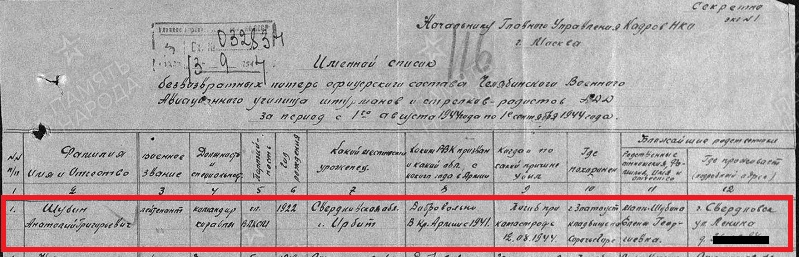 Секретно
экз №1
Начальнику Главного Управления Кадров НКО
г. Москва
032834
3 9
116
Именной список
безвозвратных потерь офицерского состава Челябинского Военного
Авиационного училища штурманов и стрелков-радистов АДД
за период с 1го августа 1944 года по 1е сентября 1944 года.
№№ п/п
Фамилия Имя и Отчество
военное звание
Должность и специальность
Партийность
Год рождения
Какой местности уроженец
Каким РВК призван и какой обл. с какого года в Армии
Когда и по какой причине убыл
Где похоронен
Ближайшие родственники
Где проживает
1 2 3 4 5 6 7 8 9 10 11 12
1. Шубин Анатолий Григорьевич
лейтенант
командир корабля
чл. ВЛКСМ
1922
Свердловская обл. г. Ирбит
Добровольно В Кр. Армии с 1941.
Погиб при катастрофе 12.08.1944.
г. Златоуст кладбище
мать Шубина Елена Георгиевна.
г. Свердловск ул Ленина д.
ПАМЯТЬ НАРОДА